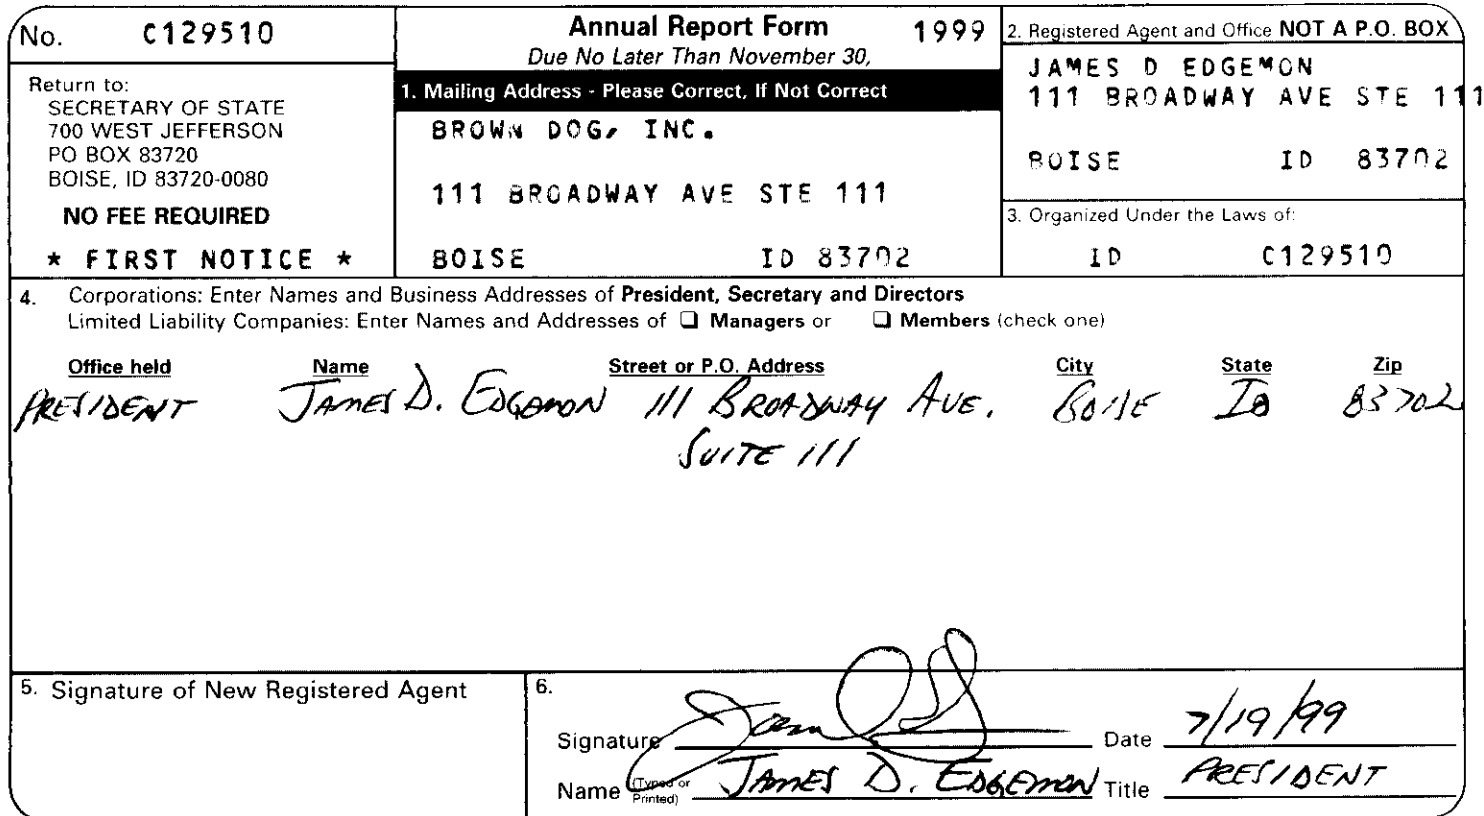 No. C129510
Return to:
SECRETARY OF STATE
700 WEST JEFFERSON
PO BOX 83720
BOISE, ID 83720-0080
NO FEE REQUIRED
* FIRST NOTICE *
Annual Report Form 1999
Due No Later Than November 30,
1. Mailing Address - Please Correct, If Not Correct
BROWN DOG, INC.
111 BROADWAY AVE STE 111
BOISE ID 83702
2. Registered Agent and Office NOT A P.O. BOX
JAMES D EDGEMON
111 BROADWAY AVE STE 111
BOISE ID 83702
3. Organized Under the Laws of:
ID C129510
4. Corporations: Enter Names and Business Addresses of President, Secretary and Directors
Limited Liability Companies: Enter Names and Addresses of ❑ Managers or ❑ Members (check one)
Office held Name Street or P.O. Address City State Zip
PRESIDENT JAMES D. EDGEMON 111 BROADWAY AVE. BOISE ID 83702
SUITE 111
5. Signature of New Registered Agent
6.
Signature Date 7/19/99
Name (Typed or Printed) JAMES D. EDGEMON Title PRESIDENT